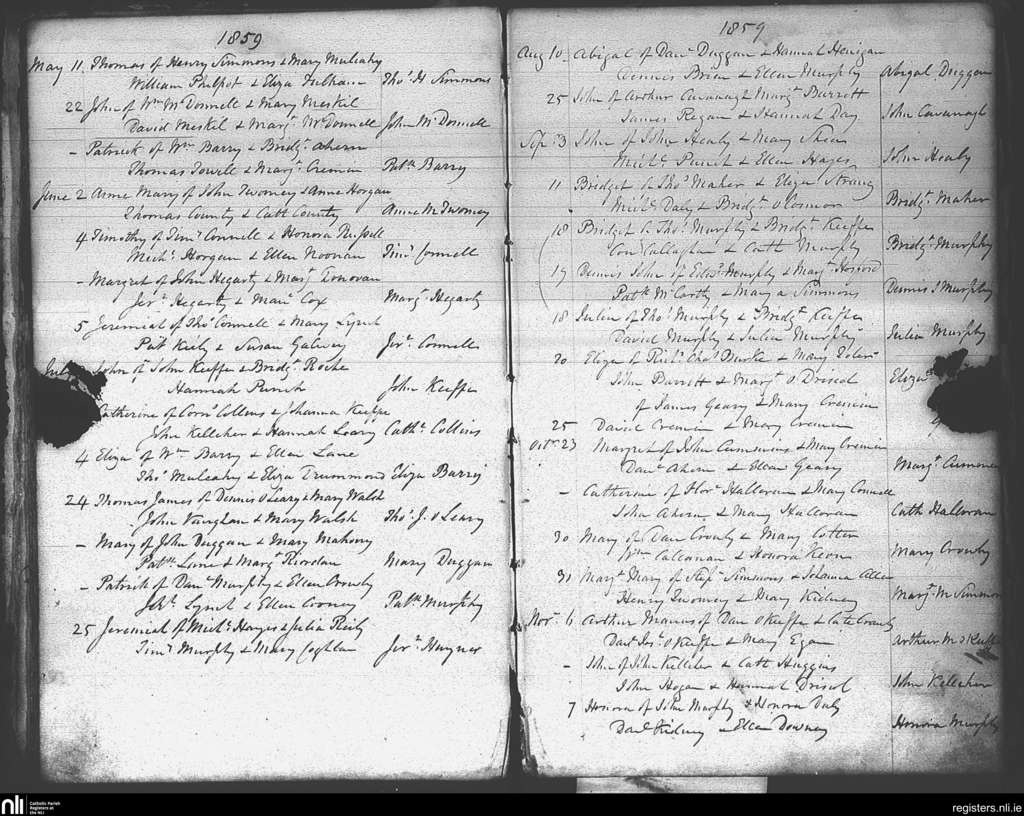 1859
May 11. Thomas of Henry Simmons & Mary Mulcahy
William Philpot & Eliza Fulham Thos. H Simmons
22 John of Wm McDonnell & Mary Meskil
David Meskil & Margt. McDonnell John McDonnell
- Patrick of Wm Barry & Bridgt. Ahern
Thomas & Margt. Cremin Patk Barry
June 2 Anne Mary of John Twomey & Anne Horgan
Thomas County & Cath County Anne M Twomey
4 Timothy of Timy Connell & Honora
Michl. Horgan & Ellen Noonan Timy Connell
- Margret of John Hegarty & Margt Donovan
Jery Hegarty & Cox Margt Hegarty
5 Jeremiah of Thos Connell & Mary Lynch
Pat Kiely & Susan Galwey Jery. Connell
July John of John Keeffe & Bridgt. Roche
Hannah John Keeffe
Catherine of Corns Collins & Johanna Keeffe
John Kelleher & Hannah Leary Cathe. Collins
4 Eliza of Wm Barry & Ellen Lane
Thos Mulcahy & Eliza Drummond Eliza Barry
24 Thomas James of Dennis O Leary & Mary Walsh
John Vaughan & Mary Walsh Thos. J. O Leary
- Mary of John Duggan & Mary Mahony
Patk Lane & Margt Riordan Mary Duggan
- Patrick of Danl Murphy & Ellen Crowly
Lynch & Ellen Patk Murphy
25 Jeremiah of Michl. Hayes & Julia
Timy Murphy & Mary Coghlan Jery.
1859
Aug 10. Abigal of Danl Duggan & Hannah Henigan
Dennis Brien & Ellen Murphy Abigal Duggan
25 John of Arthur Cavanagh & Margt Barrett
James Regan & Hannah Day John Cavanagh
Sep. 3 John of John Healy & Mary Shea
Michl. & Ellen Hayes John Healy
11 Bridget of Thos Maher & Eliza Strang
Michl Daly & Bridgt O Connor Bridgt. Maher
18 Bridget of Thos. Murphy & Bridgt Keeffe
Con Callaghan & Cath Murphy Bridgt. Murphy
17 Dennis John of Edwd Murphy & Margt
Patk McCarthy & Simmons Dennis J Murphy
18 Julia of Thos Murphy & Bridgt Keeffe
David Murphy & Julia Murphy Julia Murphy
20 Eliza of Richd. Burke & Mary
John Barrett & Margt O Driscol Eliza
of James Geary & Mary Cremin
25 David Cremin & Mary Cremin
Octr 23 Margret of John Cummins & Mary Cremin
Danl Ahern & Ellen Geary Margt
- Catherine of Halloran & Mary Connell
John Ahern & Mary Halloran Cath Halloran
30 Mary of Dan Crowly & Mary Cotter
Wm Callanan & Honora Mary Crowly
31 Margt Mary of Simmons & Johanna Allen
Henry Twomey & Mary Kidney Margt. M Simmons
Novr. 6 Arthur of Dan O Keeffe & Cate Crowly
O Keeffe & Mary Egan Arthur
- John of John Kelleher & Cath Huggins
John Hogan & Hannah Driscol John Kelleher
7 Honora of John Murphy & Honora Daly
Danl Kidney & Ellen Downey Honora Murphy
nli Catholic Parish
Registers at
the NLI
registers.nli.ie